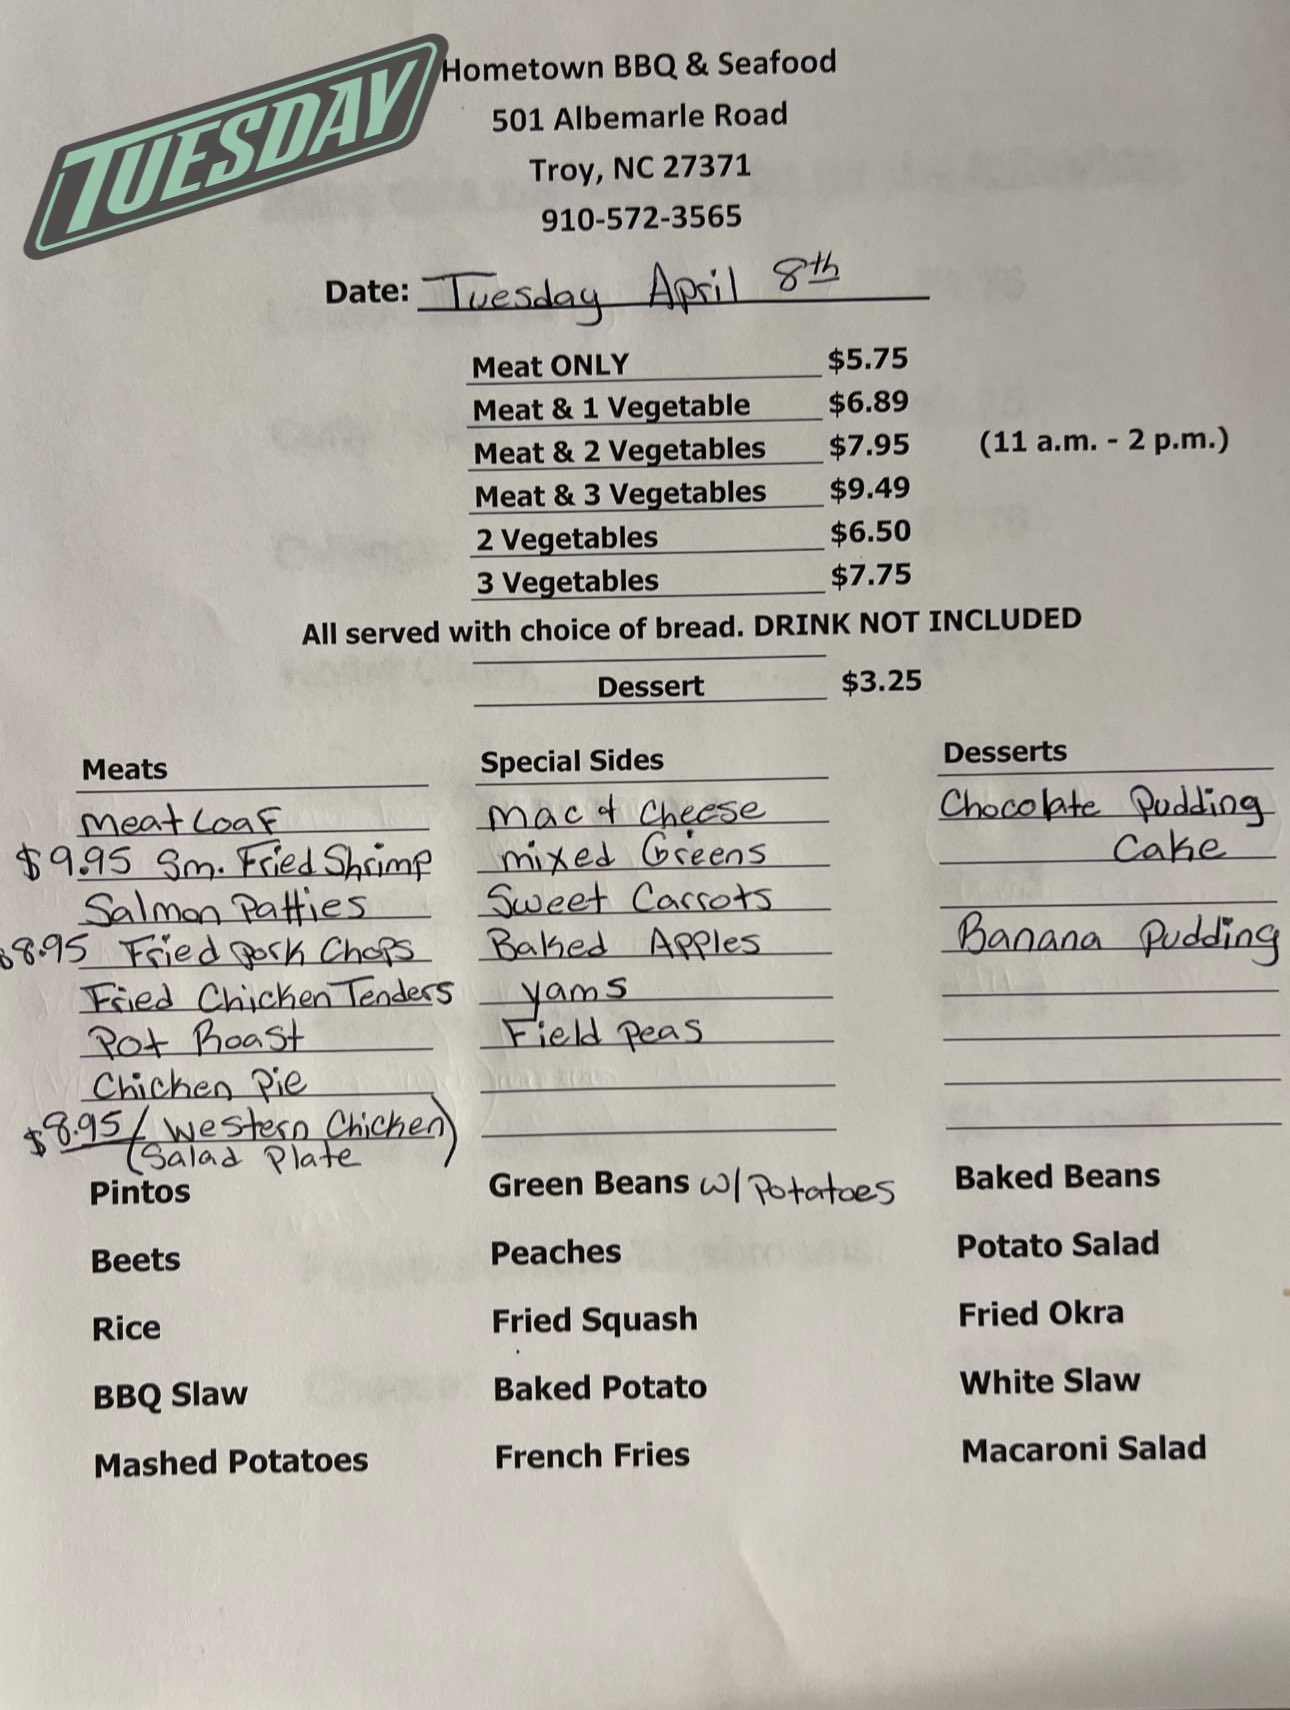 TUESDAY
Hometown BBQ & Seafood
501 Albemarle Road
Troy, NC 27371
910-572-3565
Date: Tuesday April 8th
Meat ONLY $5.75
Meat & 1 Vegetable $6.89
Meat & 2 Vegetables $7.95 (11 a.m. - 2 p.m.)
Meat & 3 Vegetables $9.49
2 Vegetables $6.50
3 Vegetables $7.75
All served with choice of bread. DRINK NOT INCLUDED
Dessert $3.25
Meats
Meat Loaf
$9.95 Sm. Fried Shrimp
Salmon Patties
$8.95 Fried Pork Chops
Fried Chicken Tenders
Pot Roast
Chicken Pie
$8.95 (Western Chicken
Salad Plate)
Special Sides
Mac & Cheese
Mixed Greens
Sweet Carrots
Baked Apples
Yams
Field Peas
Desserts
Chocolate Pudding
Cake
Banana Pudding
Pintos
Green Beans w/ Potatoes
Baked Beans
Beets
Peaches
Potato Salad
Rice
Fried Squash
Fried Okra
BBQ Slaw
Baked Potato
White Slaw
Mashed Potatoes
French Fries
Macaroni Salad